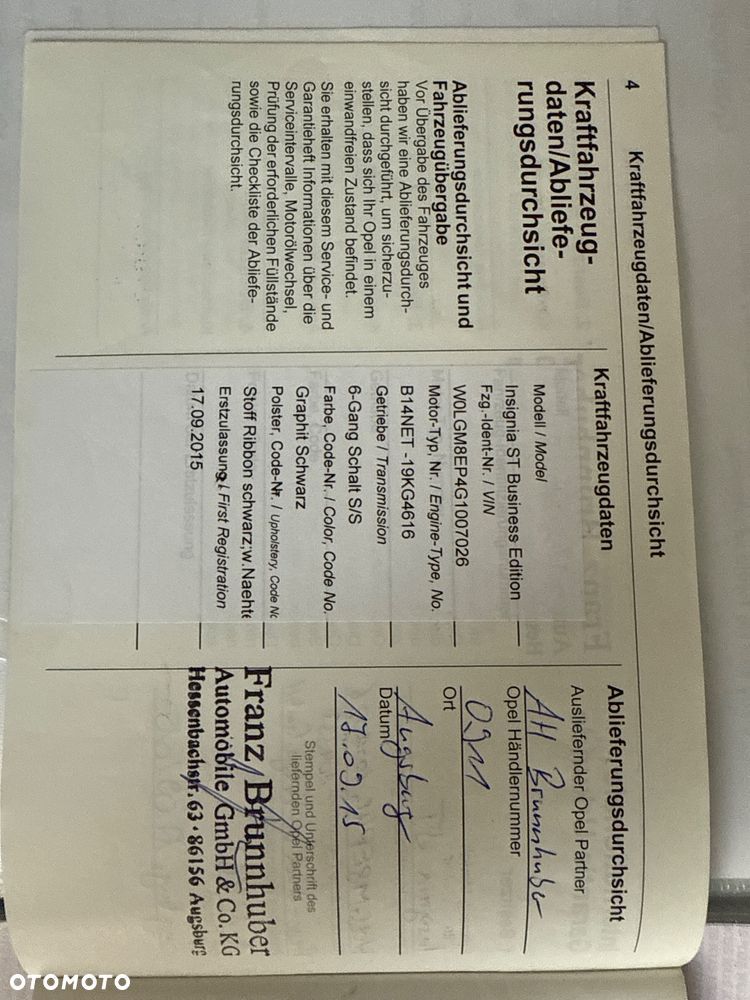 4
Kraftfahrzeugdaten/Ablieferungsdurchsicht
Kraftfahrzeug-
daten/Abliefe-
rungsdurchsicht
Ablieferungsdurchsicht und
Fahrzeugübergabe
Vor Übergabe des Fahrzeuges
haben wir eine Ablieferungsdurch-
sicht durchgeführt, um sicherzu-
stellen, dass sich Ihr Opel in einem
einwandfreien Zustand befindet.
Sie erhalten mit diesem Service- und
Garantieheft Informationen über die
Serviceintervalle, Motorölwechsel,
Prüfung der erforderlichen Füllstände
sowie die Checkliste der Abliefe-
rungsdurchsicht.
Kraftfahrzeugdaten
Modell / Model
Insignia ST Business Edition
Fzg.-Ident-Nr. / VIN
W0LGM8EP4G1007026
Motor-Typ, Nr. / Engine-Type, No.
B14NET -19KG4616
Getriebe / Transmission
6-Gang Schalt S/S
Farbe, Code-Nr. / Color, Code No.
Graphit Schwarz
Polster, Code-Nr. / Upholstery, Code No
Stoff Ribbon schwarz;w.Naehte
Erstzulassung / First Registration
17.09.2015
Ablieferungsdurchsicht
Ausliefernder Opel Partner
AH Brunnhuber
Opel Händlernummer
0911
Ort
Augsburg
Datum
17.09.15
Stempel und Unterschrift des
liefernden Opel Partners
Franz Brunnhuber
Automobile GmbH & Co. KG
Hessenbachstr. 63 · 86156 Augsburg
OTOMOTO